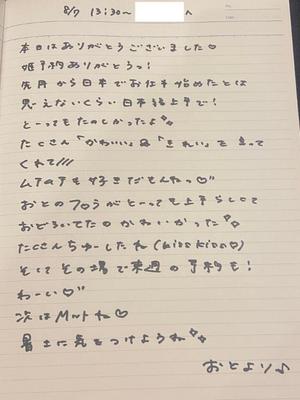 8/7 13:30〜 へ
本日はありがとうございました♡
姫予約ありがとうっ!
先月から日本でお仕事始めたとは
思えないくらい日本語上手で!
とーってもたのしかったよ
たくさん「かわいい」&「きれい」と言って
くれて///
ムアの子も好きだもんねっ♡
おとのフロうがとーっても上手らしくて
おどろいてたの かわいかった
たくさんちゅーしたね (kiss kiss♡)
そしてその場で来週の予約も!
わーい♡
次はMットね♡
暑さに気をつけようね
おとより♪